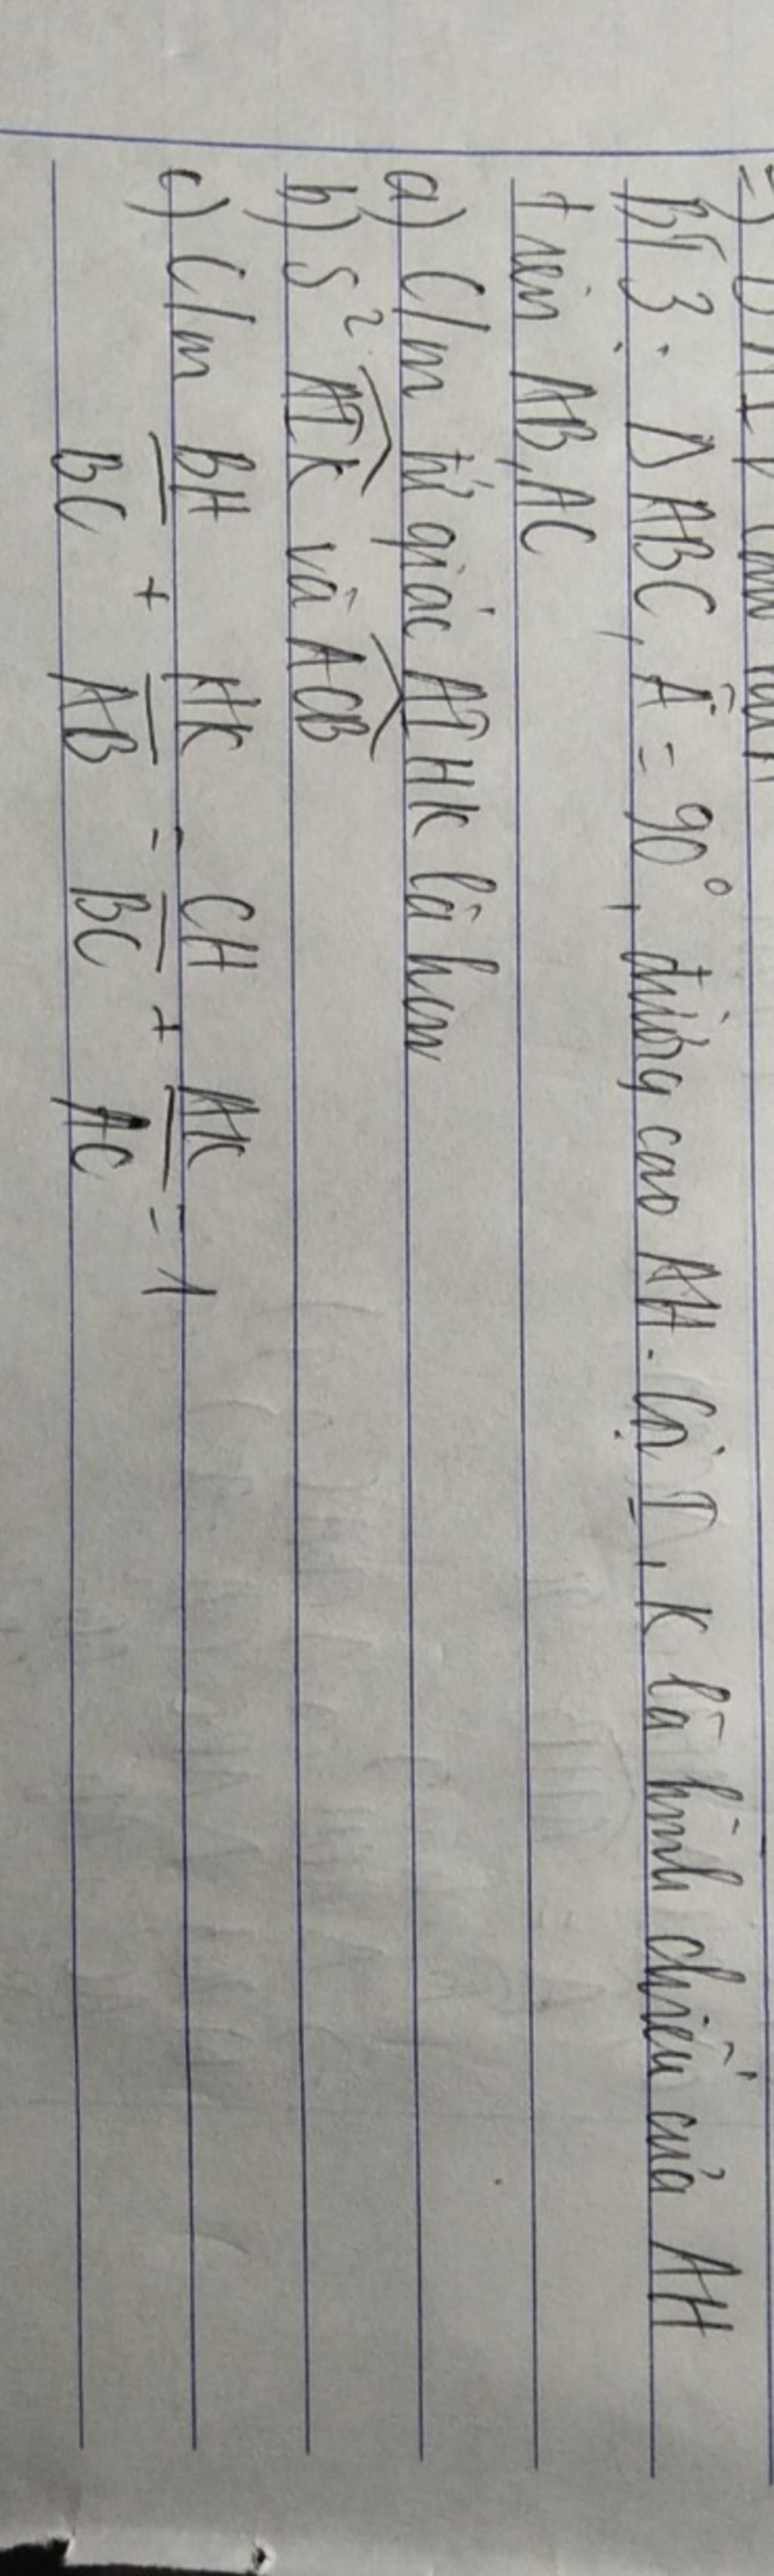 BT3: Δ ABC, Â = 90°, đường cao AH. Gọi I, K là hình chiếu của AH
trên AB, AC
a) C/m tứ giác AIHK là hcn
b) S² AIK và ACB
c) C/m BH/BC + HK/AB = CH/BC + AK/AC = 1